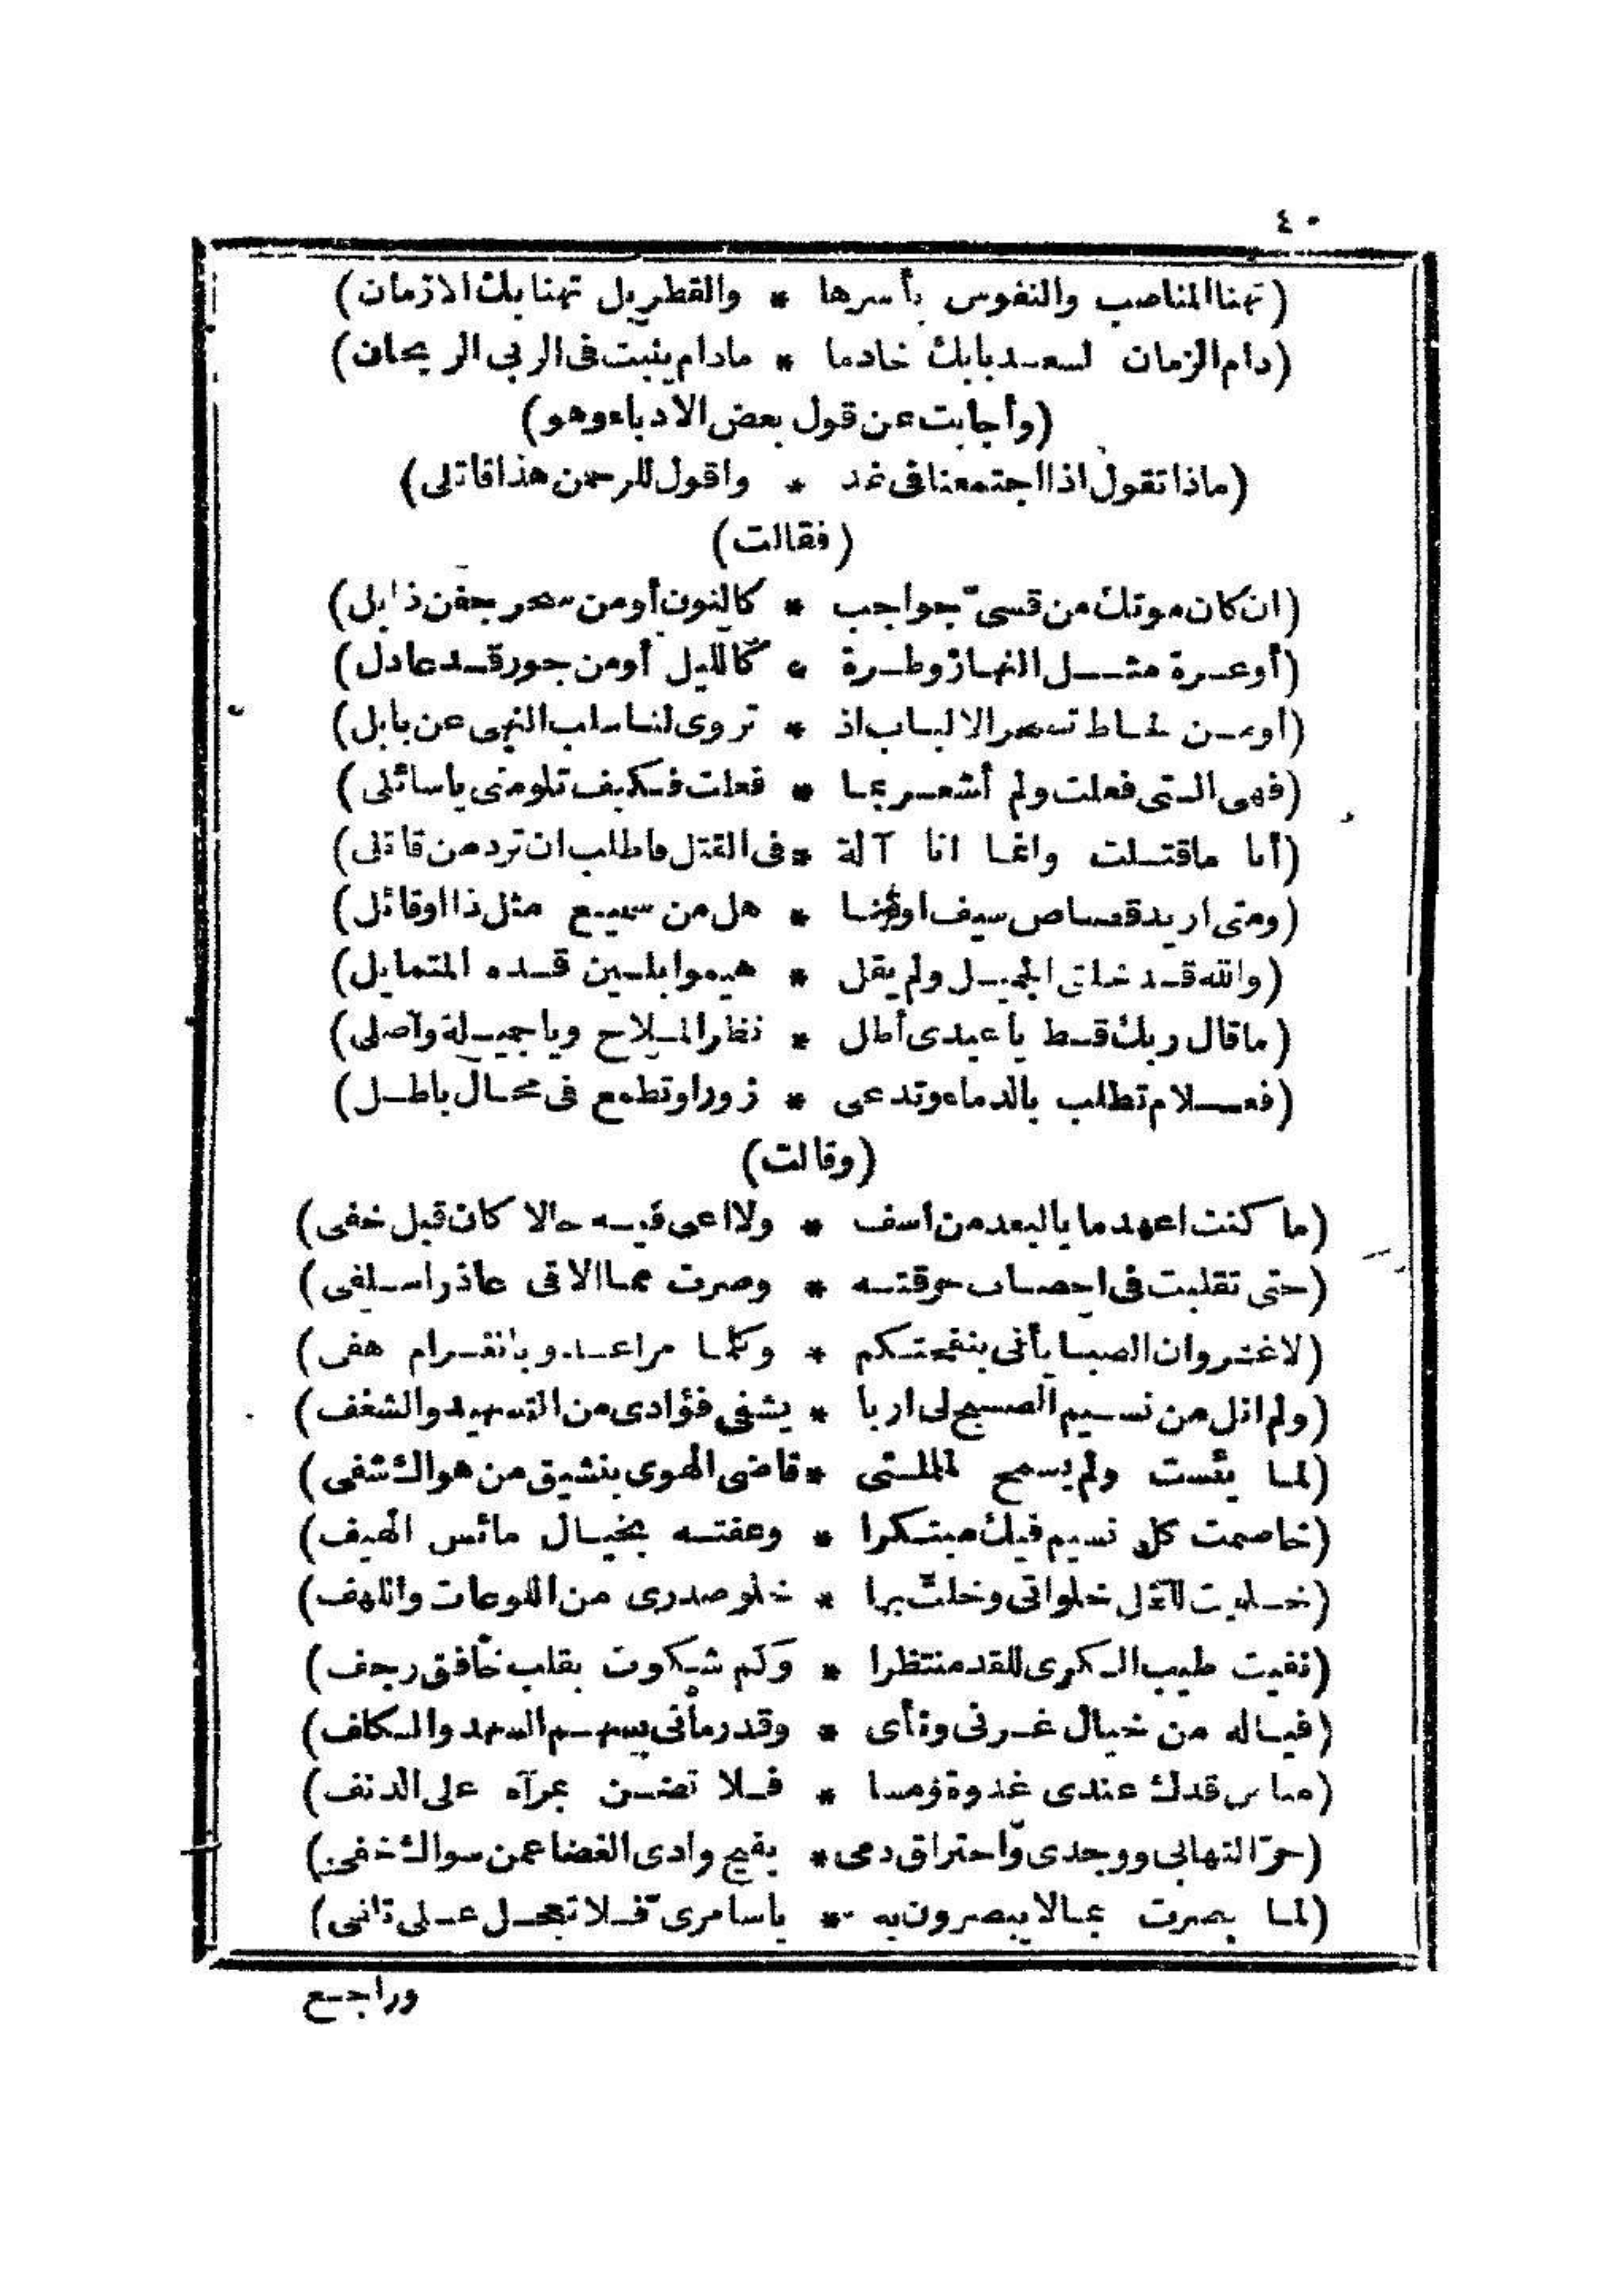 ٤٠
(تهنا المناصب والنفوس بأسرها * والقطر بل تهنا بك الازمان)
(دام الزمان لسعد بابك خادما * مادام ينبت فى الربى الريحان)
(وأجابت عن قول بعض الادباء وهو)
(ماذا تقول اذا اجتمعنا فى غد * واقول للرحمن هذا قاتلى)
(فقالت)
(ان كان موتك من قسىّ حواجب * كالنون أو من سحر جفن ذابل)
(أو غرة مثل النهار وطرة * كالليل أو من جور قد عادل)
(او من لحاظ تسحر الالباب اذ * تروى لنا سلب النهى عن بابل)
(فهى التى فعلت ولم أشعر بما * فعلت فكيف تلومنى ياسائلى)
(أنا ماقتلت وانما انا آلة * فى القتل فاطلب ان ترد من قاتلى)
(ومتى اريد قصاص سيف او قنا * هل من سميع مثل ذا اوقائل)
(والله قد خلق الجميل ولم يقل * هيموا بلين قده المتمايل)
(ماقال ربك قط ياعبدى أطل * نظر الملاح وياجميلة واصلى)
(فعلام تطلب بالدماء وتدعى * زورا وتطمع فى محال باطل)
(وقالت)
(ما كنت اعهد ما بالبعد من اسف * ولا اعى فيه حالا كان قبل خفى)
(حتى تقلبت فى احصاب حرقته * وصرت مما الاقى عاذرا سلفى)
(لاغترو ان الصبا يأتى بنفحتكم * وكلما مر اعدو بانغرام هفى)
(ولم انل من نسيم الصبح لى اربا * يشفى فؤادى من التسهيد والشغف)
(لما يئست ولم يسمح لملتى * قاضى الهوى بنشيق من هواك شفى)
(خاصمت كل نسيم فيك مبتكرا * وعفته بخيال مائس الهيف)
( خلواتى وخلت بها * خلو صدرى من اللوعات واللهف)
(نفيت طيب الكرى للقد منتظرا * وكم شكوت بقلب خافق رجف)
(فياله من خيال غرنى ونأى * وقد رمانى بسهم السهد والكلف)
( قدك عندى غدوة ومسا * فلا تضن بمرآه على الدنف)
(حرّ التهابى ووجدى واحتراق دمى * بفيح وادى الغضا عمن سواك خفى)
(لما بصرت بمالا يبصرون به * ياسامرىّ فلا تعجل على تلفى)
وراجع